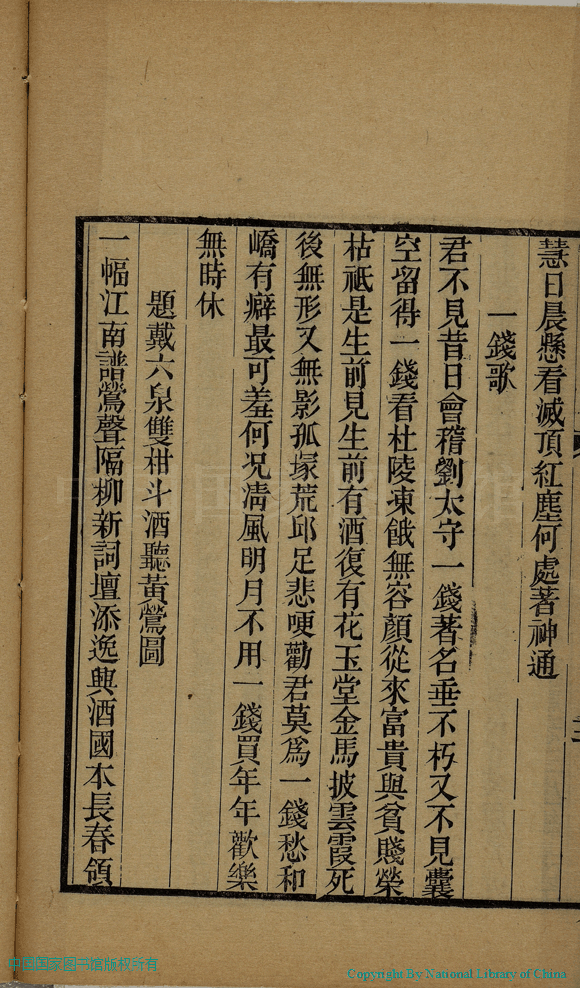 慧日晨懸看滅頂紅塵何處著神通
一錢歌
君不見昔日會稽劉太守一錢著名垂不朽又不見囊
空留得一錢看杜陵凍餓無容顏從來富貴與貧賤榮
枯祗是生前見生前有酒復有花玉堂金馬披雲霞死
後無形又無影孤塚荒邱足悲哽勸君莫爲一錢愁和
嶠有癖最可羞何况淸風明月不用一錢買年年歡樂
無時休
題戴六泉雙柑斗酒聽黃鶯圖
一幅江南譜鶯聲隔柳新詞壇添逸興酒國本長春領
中国国家图书馆版权所有
Copyright By National Library of China